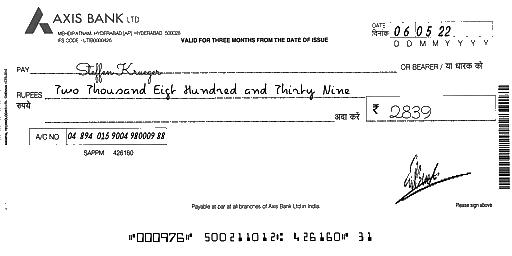 AXIS BANK LTD
MEHDIPATNAM, HYDERABAD [AP] HYDERABAD 500028
IFS CODE - UTIB0000426
VALID FOR THREE MONTHS FROM THE DATE OF ISSUE
DATE
दिनांक 06 05 22
D D M M Y Y Y Y
PAY Steffen Krueger OR BEARER / या धारक को
RUPEES Two Thousand Eigt Hundred and Thirty Nine
रुपये
अदा करें ₹ 2839
A/C NO 04 894 015 9004 980009 88
SAPPM 426160
Payable at par at all branches of Axis Bank Ltd in India.
Please sign above
⑈000976⑈ 500211012⑆ 426160⑈ 31